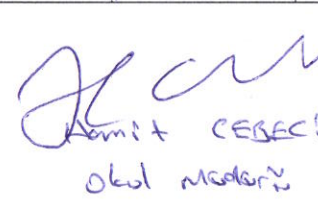 Hamit CEBECİ
Okul Müdürü